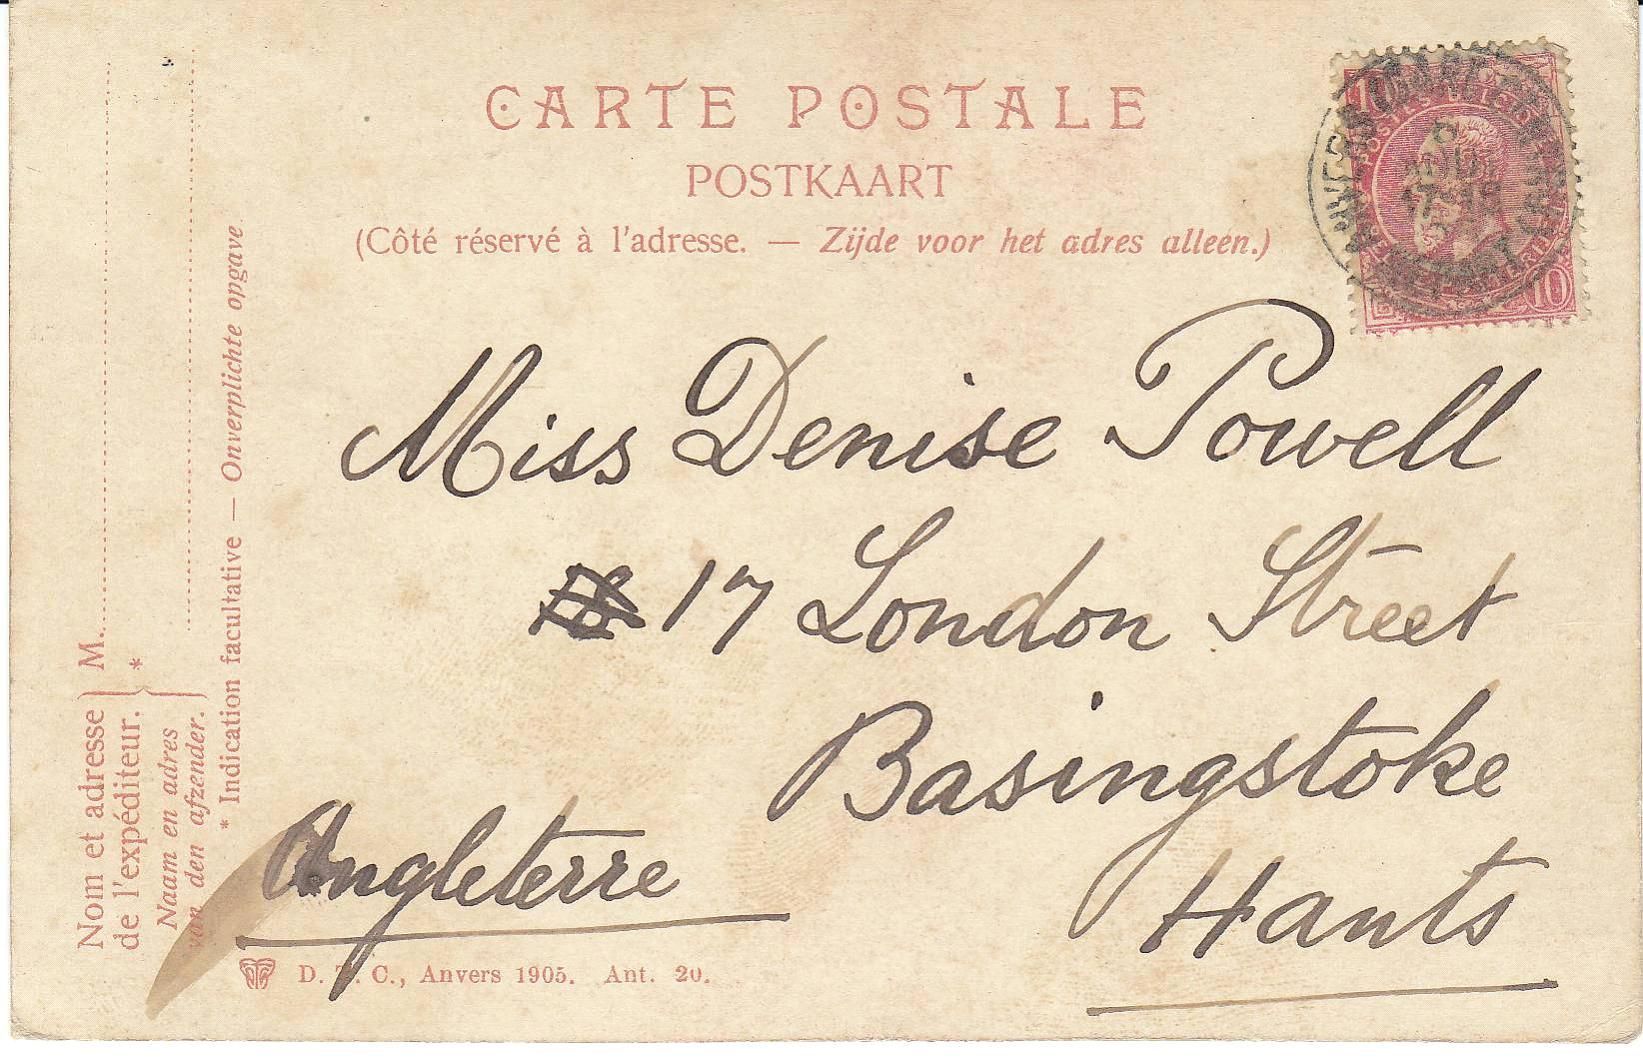 CARTE POSTALE
POSTKAART
(Côté réservé à l'adresse. — Zijde voor het adres alleen.)
10
10
Miss Denise Powell
17 London Street
Basingstoke
Hants
Angleterre
D. T. C., Anvers 1905. Ant. 20.
Nom et adresse
de l'expéditeur.
M.
*
Naam en adres
van den afzender.
* Indication facultative — Onverplichte opgave